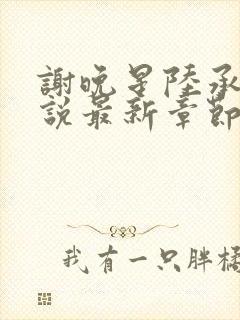 謝晚星陸承
說最新章節
我有一只胖橘